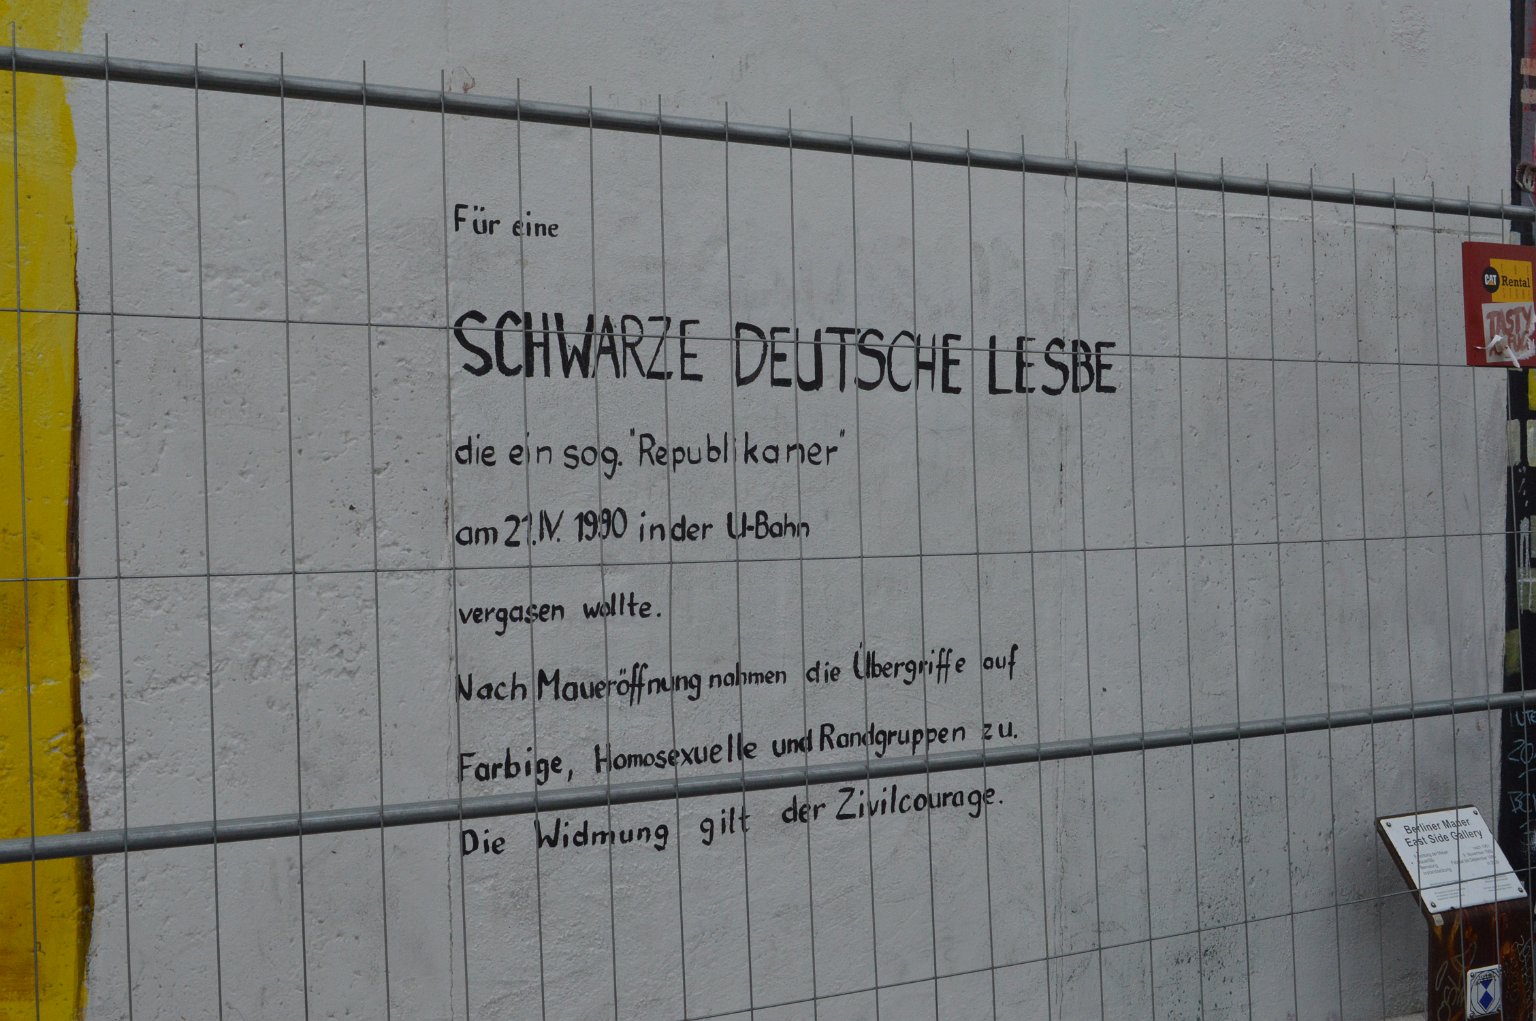 Für eine
SCHWARZE DEUTSCHE LESBE
die ein sog. "Republikaner"
am 21.IV. 1990 in der U-Bahn
vergasen wollte.
Nach Maueröffnung nahmen die Übergriffe auf
Farbige, Homosexuelle und Randgruppen zu.
Die Widmung gilt der Zivilcourage.
CAT
Rental
TASTY
Berliner Mauer
East Side Gallery